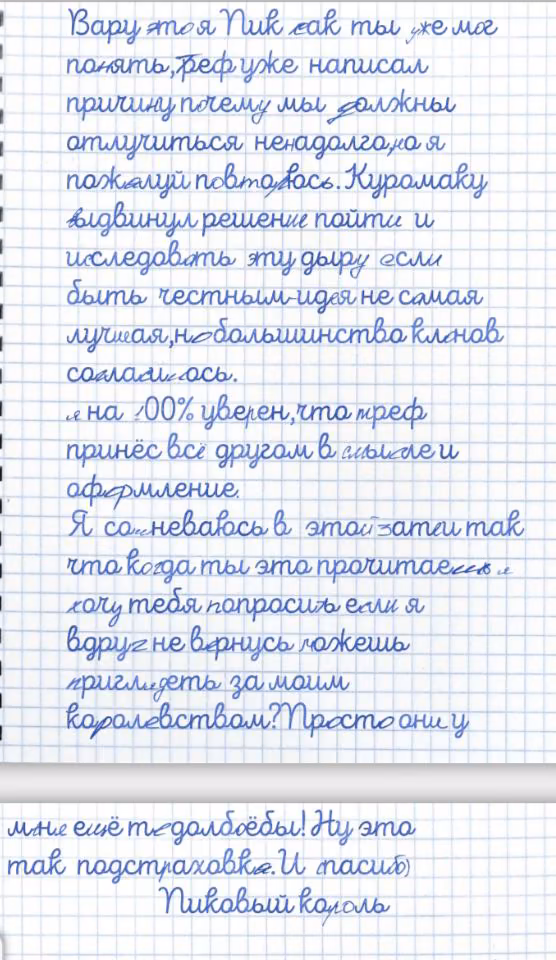 Вару это я Пик как ты уже мог
понять,Треф уже написал
причину почему мы должны
отлучиться ненадолго,но я
пожалуй повторюсь. Куромаку
выдвинул решение пойти и
исследовать эту дыру если
быть честным-идея не самая
лучшая,но большинство кланов
согласилось.
я на 100% уверен,что треф
принёс всё другом в смысле и
оформление.
Я сомневаюсь в этой затеи так
что когда ты это прочитаешь я
хочу тебя попросить если я
вдруг не вернусь можешь
приглядеть за моим
королевством?Просто они у
мне ещё те долбоёбы! Ну это
так подстраховка. И спасиб)
Пиковый король